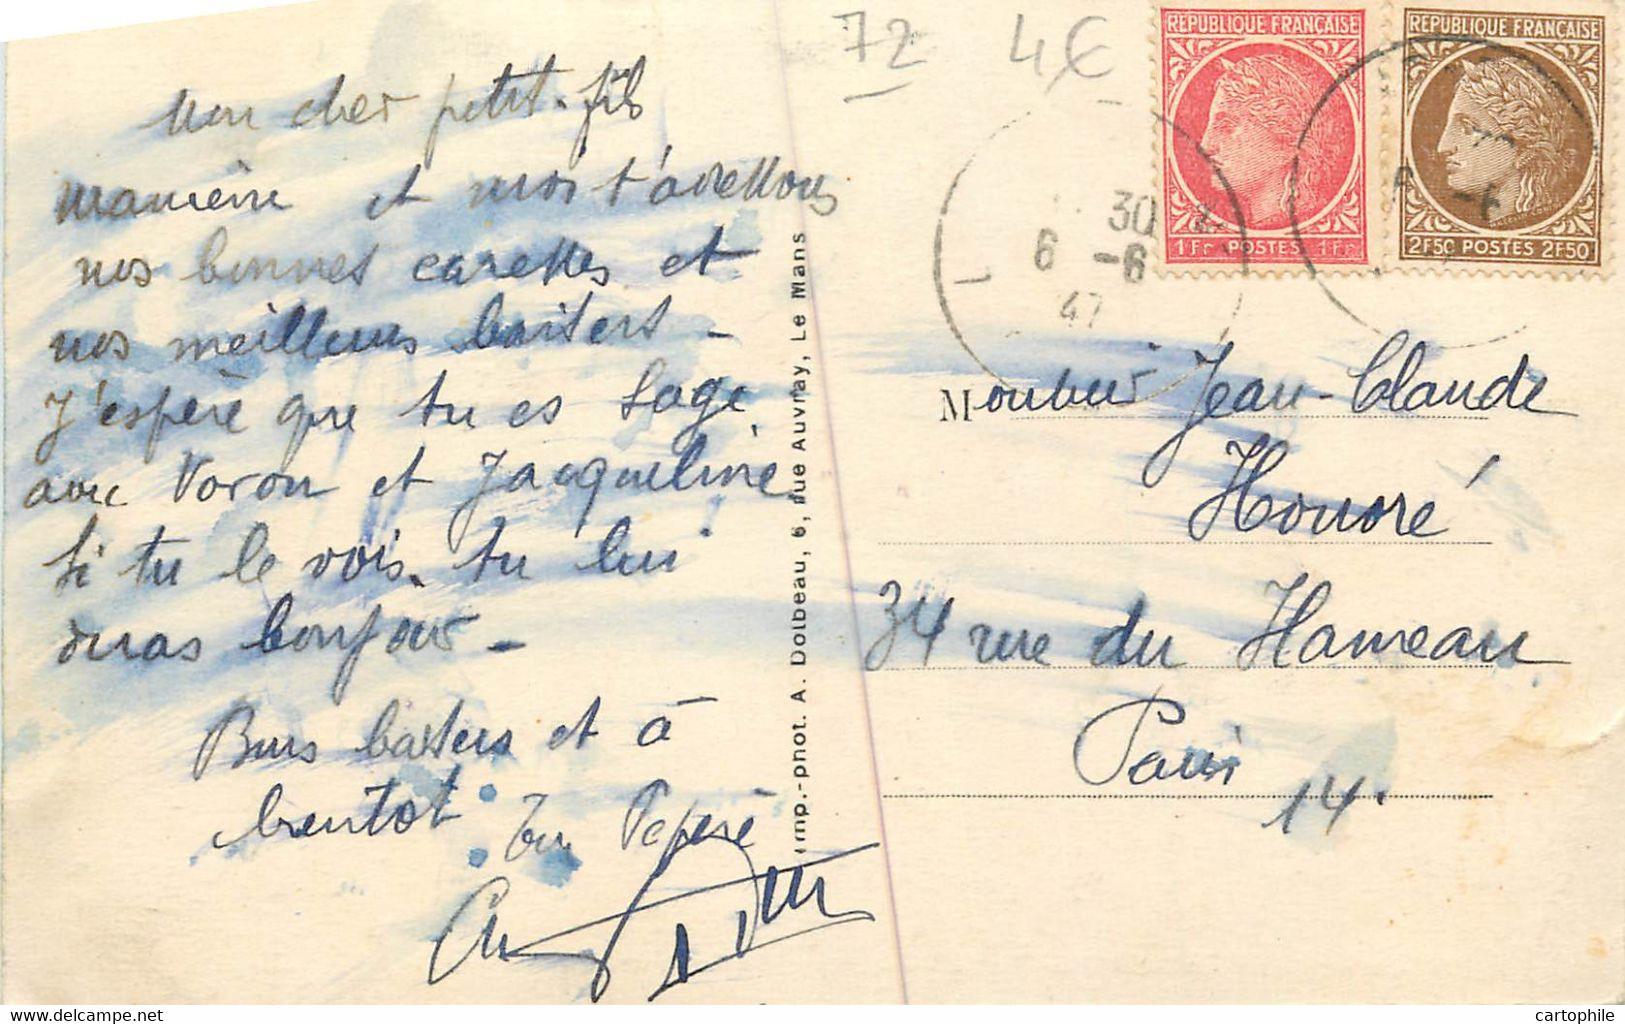 72 4€
RÉPUBLIQUE FRANÇAISE
1Fr POSTES 1Fr
RÉPUBLIQUE FRANÇAISE
2F50 POSTES 2F50
30
6 -6
47
-6
Mon cher petit-fils
et moi t'adressons
nos bonnes caresses et
nos meilleurs baisers -
J'espère que tu es sage
avec Voron et Jacqueline
si tu le vois. tu lui
diras bonjour -
Bons baisers et à
bientot Ton Pépère
Imp.-phot. A. Dolbeau, 6, rue Auvray, Le Mans
Monsieur Jean-Claude
Honoré
34 rue du Hameau
Paris
14.
www.delcampe.net
cartophile